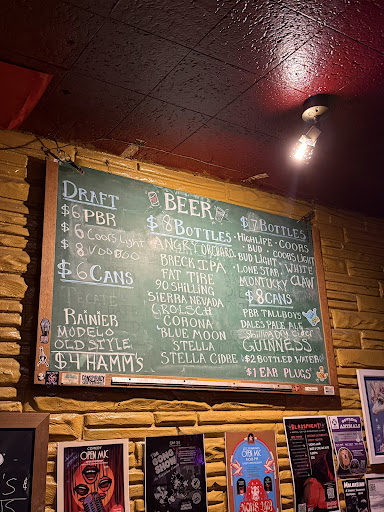 BEER
DRAFT
$6 PBR
$6 Coors Light
$8 VOODOO
$6 CANS
TECATE
RAINIER
MODELO
OLD STYLE
$4 HAMM'S
$8 BOTTLES
ANGRY ORCHARD
BRECK IPA
FAT TIRE
90 SHILLING
SIERRA NEVADA
GROLSCH
CORONA
BLUE MOON
STELLA
STELLA CIDRE
$7 BOTTLES
HIGH LIFE • COORS
BUD • COORS LIGHT
BUD LIGHT • WHITE
LONE STAR CLAW
MONTUCKY
$8 CANS
PBR TALLBOYS
DALES PALE ALE
GUINNESS
$2 BOTTLED WATER
$1 EAR PLUGS
COMEDY
OPEN MIC
THE
GONG
SHOW
OPEN
MIC
BLASPHEMY
ANIMALS